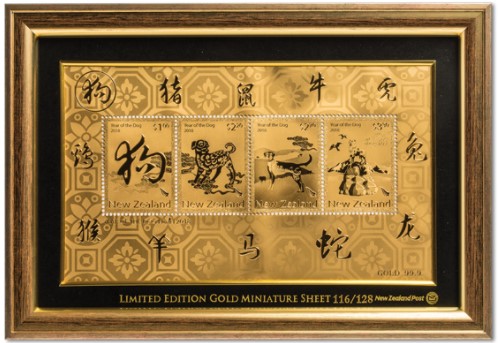 狗 猪 鼠 牛 虎
鸡
兔
Year of the Dog
2018
Year of the Dog
2018
Year of the Dog
2018
Year of the Dog
2018
狗
New Zealand
New Zealand
New Zealand
New Zealand
猴 羊 马 蛇 龙
GOLD 99.9
LIMITED EDITION GOLD MINIATURE SHEET 116/128 New Zealand Post